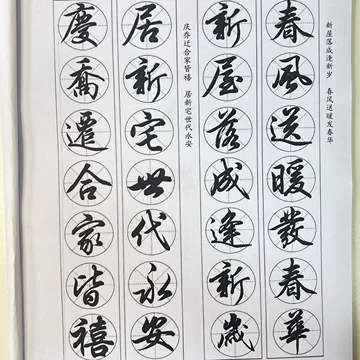 新屋落成逢新岁 春风送暖发春华
春風送暖發春華
新屋落成逢新歲
庆乔迁合家皆禧 居新宅世代永安
居新宅世代永安
慶喬遷合家皆禧